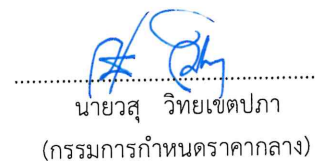 นายวสุ วิทยเขตปภา
(กรรมการกำหนดราคากลาง)